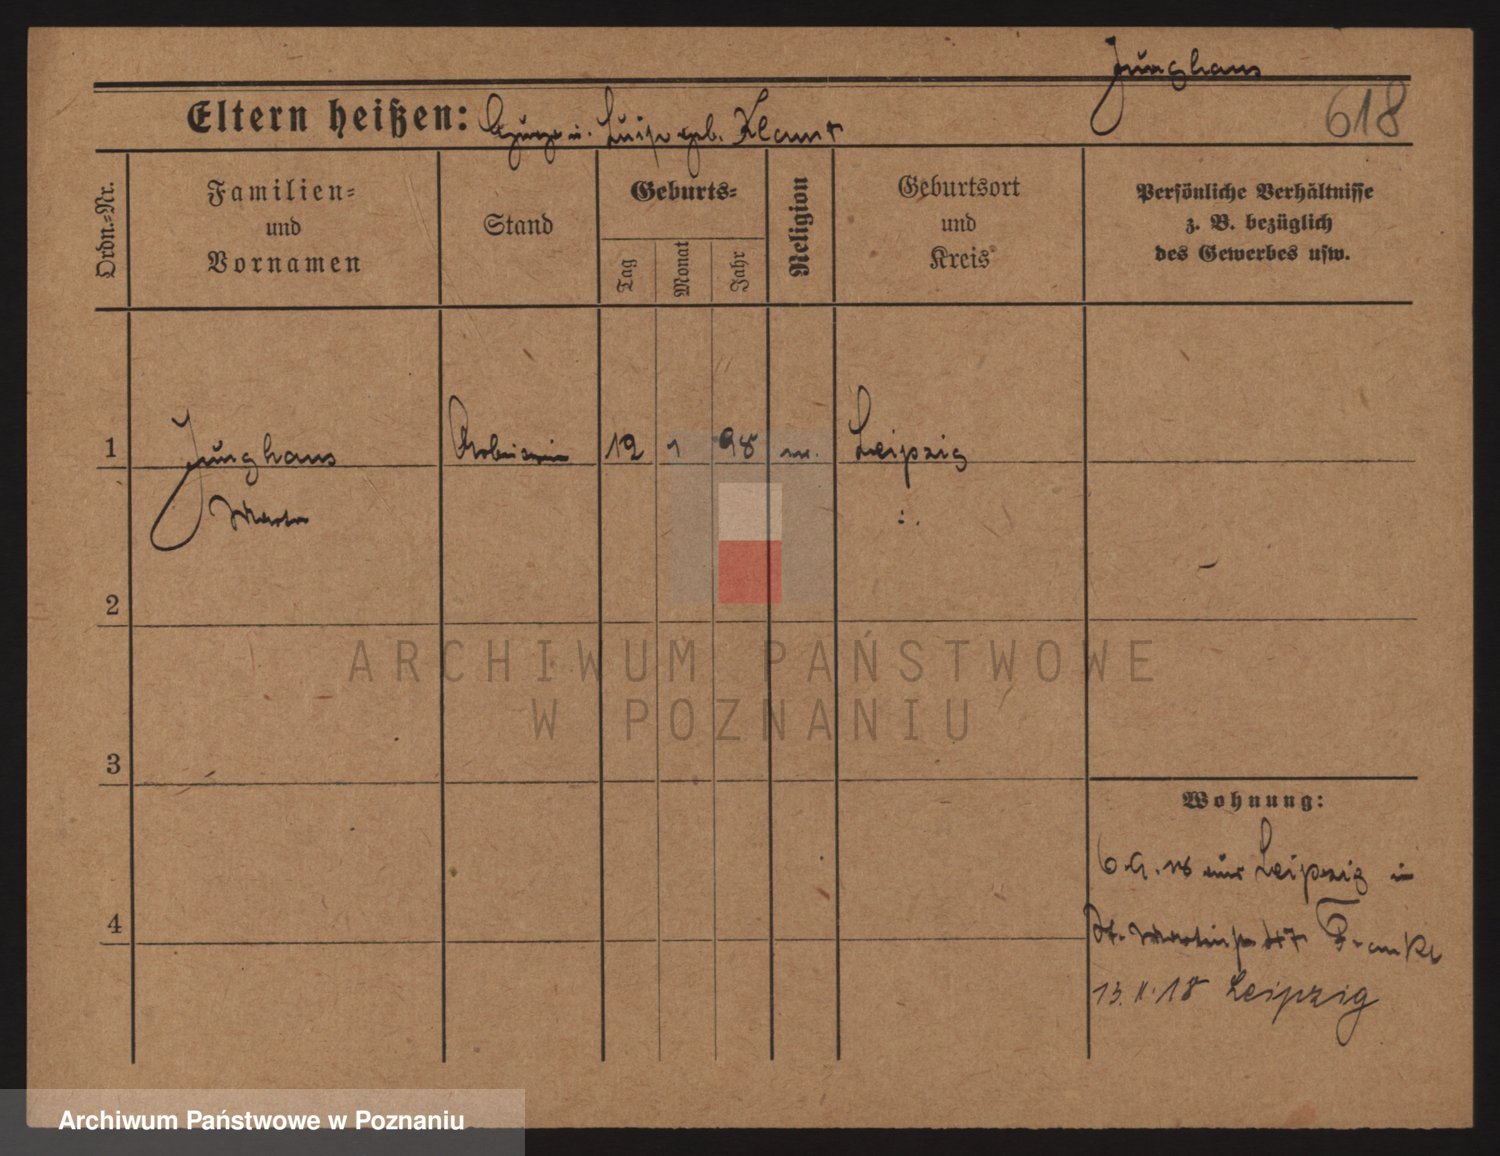 Junghans
618
Eltern heißen: u. Luise geb. Klamt
Ordn.-Nr.
Familien-
und
Vornamen
Stand
Geburts-
Tag
Monat
Jahr
Religion
Geburtsort
und
Kreis
Persönliche Verhältnisse
z. B. bezüglich
des Gewerbes usw.
1
Junghans
Arbeiterin
12
1
98
Leipzig
2
ARCHIWUM PAŃSTWOWE
W POZNANIU
3
Wohnung:
Leipzig in
4
St. Martinstr 47 Franke
13. 11. 18 Leipzig
Archiwum Państwowe w Poznaniu